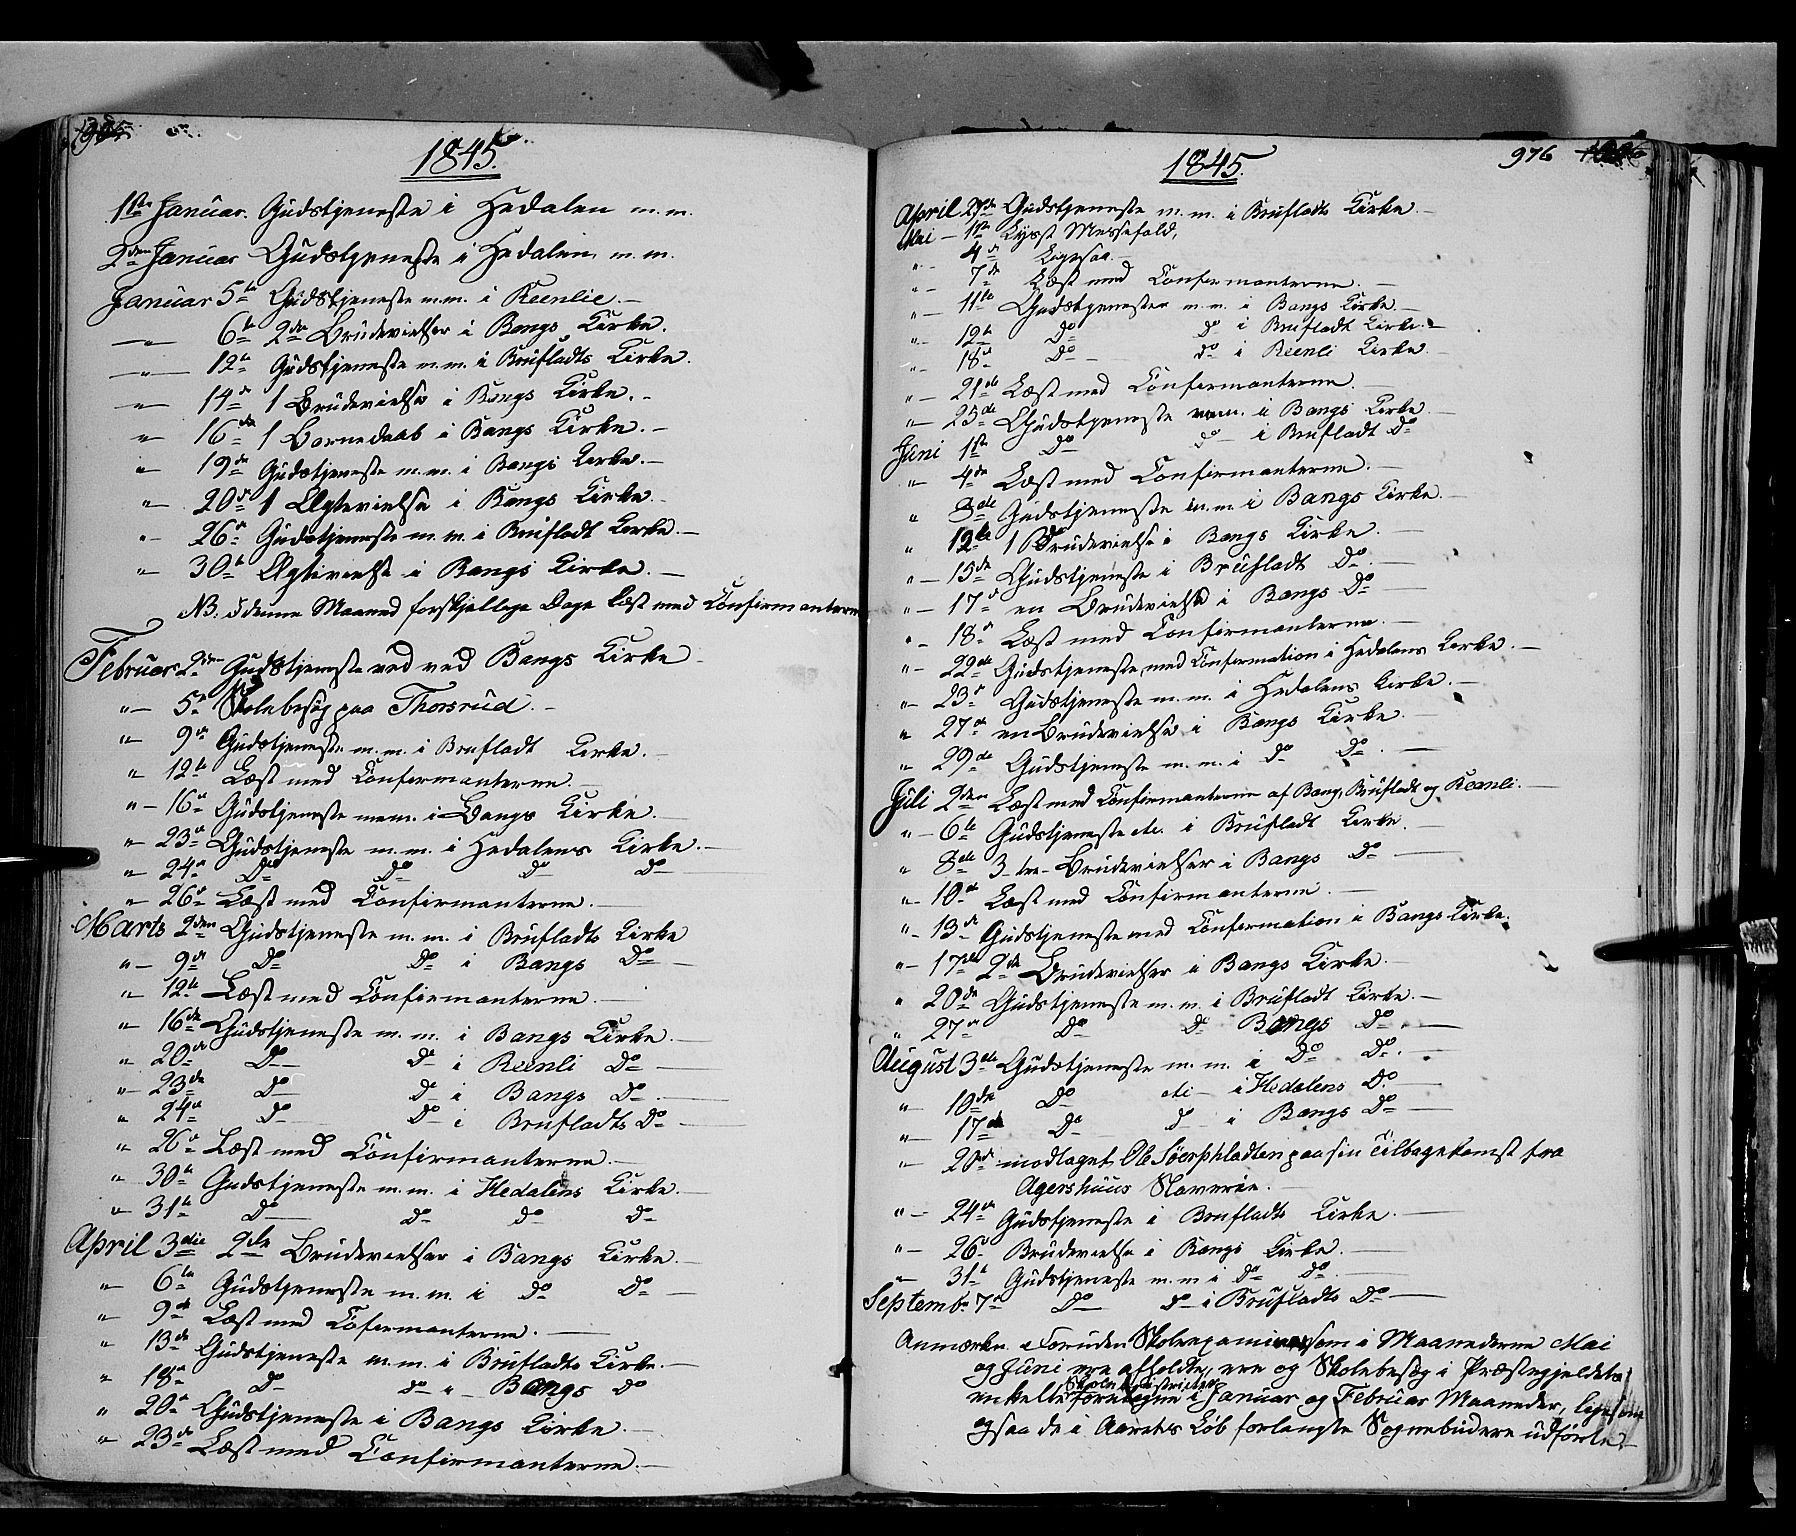 1845.
1ste Januar. Gudstjeneste i Hedalen m.m.
2den Januar Gudstjeneste i Hedalen m.m.
Januar 5te Gudstjeneste m.m. i Reenlie.—
—"— 6te 2de Brudevielser i Bangs Kirke.
—"— 12te Gudstjeneste m.m. i Brufladts Kirke.
—"— 14de 1 Brudevielse i Bangs Kirke.-
" 16de 1 Barnedaab i Bangs Kirke.—
" 19de Gudstjeneste m.m. i Bangs Kirke.—
"— 20de 1 Ægtevielse i Bangs Kirke.
"- 26de Gudstjeneste m.m. i Brufladt Kirke.—
"- 30te Ægtevielse i Bangs Kirke.—
NB. I denne Maaned forskjellige Dage læst med Confirmanterne
Februar 2den Gudstjeneste ved ved Bangs Kirke —
"— 5te Skolebesøg paa Thorsrud.—
"- 9de Gudstjeneste m.m. i Brufladt Kirke.—
" 12te Læst med Confirmanterne.—
"- 16de Gudstjeneste m.m. i Bangs Kirke.
"- 23de Gudstjeneste m.m. i Hedalens Kirke.—
" 24de Do Do Do Do —
"- 26de Læst med Confirmanterne.—
Marts 2den Gudstjeneste m.m. i Brufladts Kirke
"- 9de Do Do i Bangs Do —
" 12te Læst med Confirmanterne.—
"- 16de Gudstjeneste m.m. i Bangs Kirke.—
"- 20de Do Do i Reenli Do —
"- 23de Do Do i Bangs Do.—
" 24de Do Do i Brufladts Do —
" 26de Læst med Confirmanterne.—
" 30te Gudstjeneste m.m. i Hedalens Kirke.—
"- 31te Do Do Do Do
April 3die 2de Brudevielser i Bangs Kirke.—
"- 6te Gudstjeneste m.m. i Do Do —
" 9de Læst med Cofirmanterne.—
" 13de Gudstjeneste m.m. i Brufladts Kirke.—
" 18de Do do " Bangs Do
" 20de Gudstjeneste i Bangs Kirke.—
"- 23de Læst med Confirmanterne.—
976
1845.
April 27de Gudstjeneste m.m. i Brufladts Kirke.—
Mai — 1ste Lyst Messefald,
"- 4de Ligesaa.—
"- 7de Læst med Confirmanterne.—
"- 11te Gudstjenesten m.m. i Bangs Kirke.—
"- 12te Do do i Brufladt Kirke.—
"- 18de Do — do i Reenli Kirke.
"- 21de Læst med Confirmanterne.—
"- 25de Gudstjeneste m.m. i Bangs Kirke.—
Juni 1ste Do do — i Brufladt Do
"- 4de Læst med Confirmanterne.—
" 8de Gudstjeneste m.m. i Bangs Kirke.—
" 12te 1 Brudevielse i Bangs Kirke.—
"- 15de Gudstjeneste i Brufladt Do.—
"- 17de en Brudevielse i Bangs Do —
"- 18de Læst med Confirmanterne.—
"- 22de Gudstjeneste med Confirmation i Hedalens Kirke.—
"- 23de Gudstjeneste m.m. i Hedalens Kirke.—
" 27de en Brudevielse i Bangs Kirke.—
" 29de Gudstjeneste m.m. i do Do.—
Juli 2den Læst med Confirmanterne af Bang, Brufladt og Reenli.—
"- 6te Gudstjeneste etc. i Brufladt Kirke.
" 8de 3 tre Brudevielser i Bangs Do —
"- 10de Læst med Confirmanterne.—
"- 13de Gudstjeneste med Confirmation i Bangs Kirke.
"- 17de 2de Brudevielser i Bangs Kirke.—
" 20de Gudstjeneste m.m. i Brufladt Kirke.—
" 27de Do Do Bangs Do.—
August 3de Gudstjeneste m.m. i Do Do.—
" 10de Do etc — i Hedalens Do —
"- 17de Do do i Bangs Do —
"- 20de modtaget Ole paa sin Tilbagekomst fra
Agershuus Slaverie.—
"- 24de Gudstjeneste i Brufladts Kirke.—
"- 26de Brudevielse i Bangs Kirke.—
"- 31te Gudstjeneste m.m i Do Do.—
Septemb. 7de Do do — i Brufladts Do —
Anmærkn. Foruden Skoleexamina som i Maanederne Mai
og Juni ere afholdte, ere og Skolebesøg i Præstegjeldets
enkelte Skoledistricter foretagne i Januar og Februar Maaneder, ligesom
ogsaa de i Aarets Løb forlangte Sognebudene udførte.—